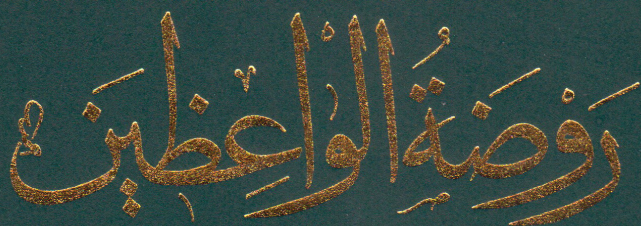 رَوْضَةُ الْوَاعِظِينَ